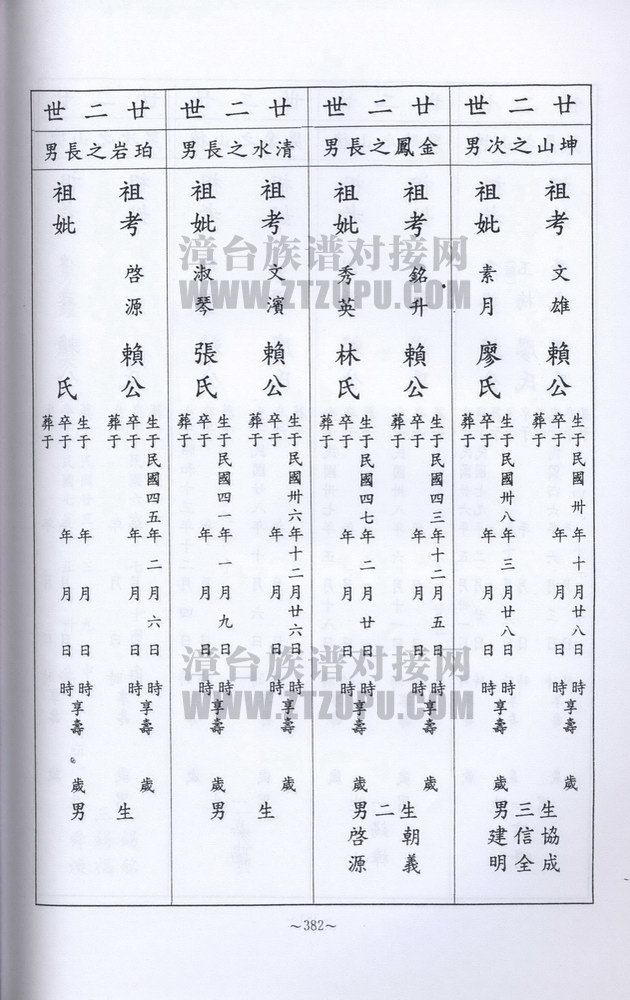 廿二世
坤山之次男
祖考 文雄 賴公
生于民國 卅年十月廿八日 時享壽 歲
卒于 年 月 日 時
葬于
祖妣 素月 廖氏
生于民國卅八年三月廿八日 時享壽 歲
卒于 年 月 日 時
葬于
生三男
協成
信全
建明
廿二世
金鳳之長男
祖考 銘升 賴公
生于民國四三年十二月五日 時享壽 歲
卒于 年 月 日 時
葬于
祖妣 秀英 林氏
生于民國四七年二月廿日 時享壽 歲
卒于 年 月 日 時
葬于
生二男
朝義
啓源
廿二世
清水之長男
祖考 文濱 賴公
生于民國卅六年十二月廿六日 時享壽 歲
卒于 年 月 日 時
葬于
祖妣 淑琴 張氏
生于民國四一年一月九日 時享壽 歲
卒于 年 月 日 時
葬于
生 男
廿二世
珀岩之長男
祖考 啓源 賴公
生于民國四五年二月六日 時享壽 歲
卒于 年 月 日 時
葬于
祖妣 氏
生于 年 月 日 時享壽 歲
卒于 年 月 日 時
葬于
生 男
～382～
漳台族谱对接网
WWW.ZTZUPU.COM
漳台族谱对接网
WWW.ZTZUPU.COM